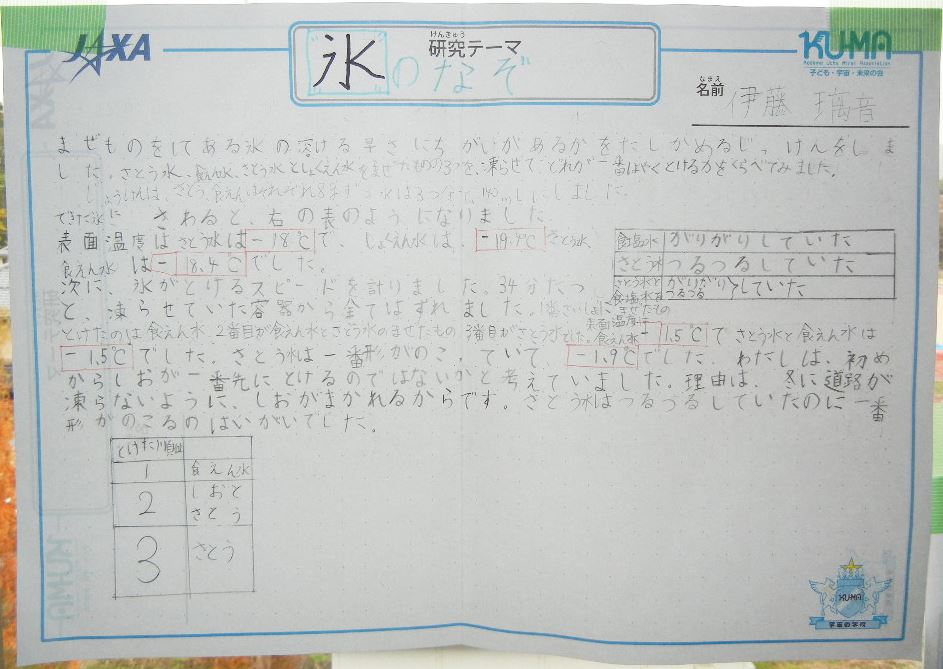 JAXA
けんきゅう
研究テーマ
氷のなぞ
KU-MA
Kodomo Uchu Mirai Association
子ども・宇宙・未来の会
なまえ
名前 伊藤 璃音
まぜものをしてある氷の溶ける早さにちがいがあるかをたしかめるじっけんをしま
した。さとう水、食えん水、さとう水としょくえん水をまぜたものの3つを、凍らせて、どれが一番はやくとけるかをくらべてみました。
じょうけんは、さとう、食えんはそれぞれ8
水は3つ分にしました。
できた氷に さわると、右の表のようになりました。
表面温度はさとう水は-18℃で、しょくえん水は、-19.4℃さとう水、
食えん水は-18.4℃でした。
食塩水 がりがりしていた
さとう水 つるつるしていた
さとう水と食塩水を がりがりつるつるしていた
次に、氷がとけるスピードを計りました。34分たつ
と、凍らせていた容器から全てはずれました。1番さいしょに まぜたもの
とけたのは食えん水、2番目が食えん水とさとう水のまぜたもの 3番目がさとう水でした。表面温度は食えん水-1.5℃で さとう水と食えん水は
-1.5℃でした。さとう水は一番形がのこっていて、-1.9℃でした。わたしは、初め
からしおが一番先にとけるのではないかと考えていました。理由は、冬に道路が
凍らないように、しおがまかれるからです。さとう水はつるつるしていたのに一番
形がのこるのはいがいでした。
とけた順番
1 食えん水
2 しおとさとう
3 さとう
KU-MA
宇宙の学校